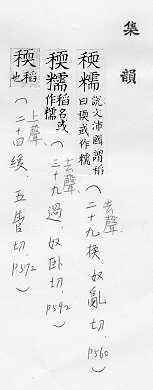 集韻
稬糯 說文沛國謂稻曰稬或作糯 (去聲. 二十九換, 奴亂切, P560)
稬糯 稻名或作糯 (去聲. 三十九過, 奴臥切, P592)
稬 稻也 (上聲. 二十四緩, 五管切, P372)